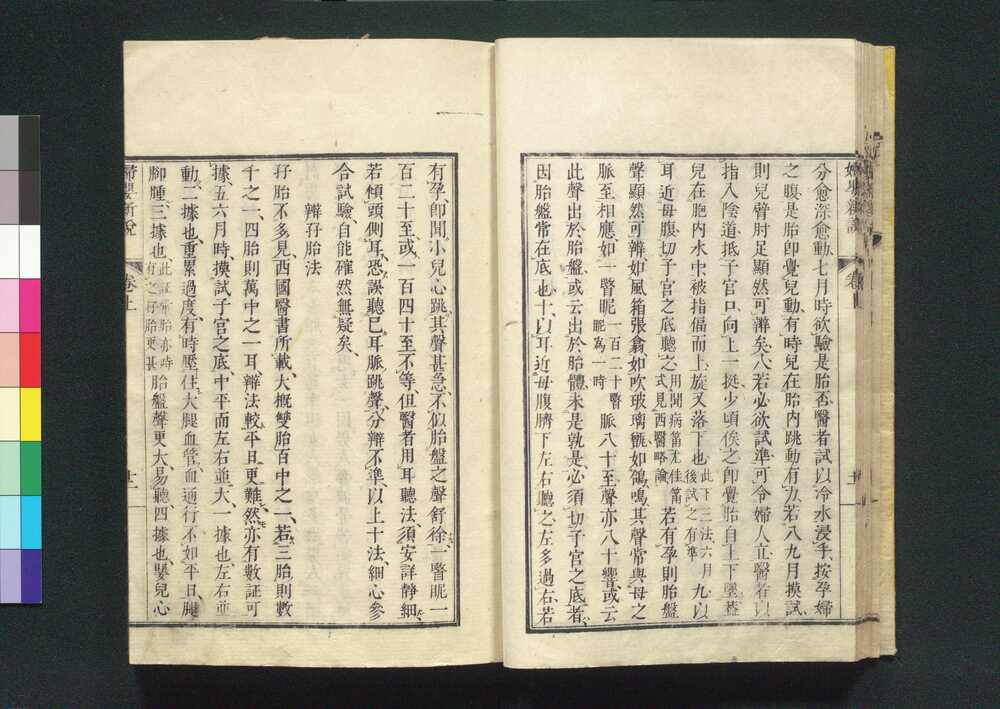 分愈深愈動、七月時欲驗是胎否、醫者試以冷水浸手、按孕婦
之腹、是胎卽覺兒動、有時兒在胎內跳動有力、若八九月摸試、
則兒臂肘足顯然可辨矣、八若必欲試準、可令婦人立、醫者以
指入陰道、抵子宮口、向上一挺、少頃俟之、卽覺胎自上下墜、蓋
兒在胞內水中、被指偪而上、旋又落下也、此下三法六月後試之有準 九以
耳近母腹、切子宮之底聽之、用聞病筩尤佳筩式見西醫略論 若有孕則胎盤
聲顯然可辨、如風箱張翕、如吹玻璃甁、如鴿鳴、其聲常與母之
脈至相應、如一瞥眤一百二十瞥眤爲一時 脈八十至、聲亦八十響、或云
此聲出於胎盤、或云出於胎體、未是孰是、必須切子宮之底者、
因胎盤常在底也、十以耳近母腹臍下左右聽之、左多過右、若
有孕、卽聞小兒心跳、其聲甚急、不似胎盤之聲舒徐、一瞥眤一
百二十至、或一百四十至不等、但醫者用耳聽法、須安詳靜細、
若傾頭側耳、恐誤聽已耳脈跳聲、分辨不準、以上十法、細心參
合試驗、自能確然無疑矣、
辨孖胎法
孖胎不多見、西國醫書所載、大槪雙胎百中之一、若三胎則數
千之一、四胎則萬中之一耳、辯法較平日更難、然亦有數証可
據、五六月時、摸試子宮之底、中平而左右並大、一據也、左右並
動、二據也、重累過度、有時壓住大腿血管、血通行不如平日、腿
脚腫、三據也、此証常胎亦時有之孖胎更甚 胎盤聲更大、易聽、四據也、嬰兒心
婦嬰新說
卷上